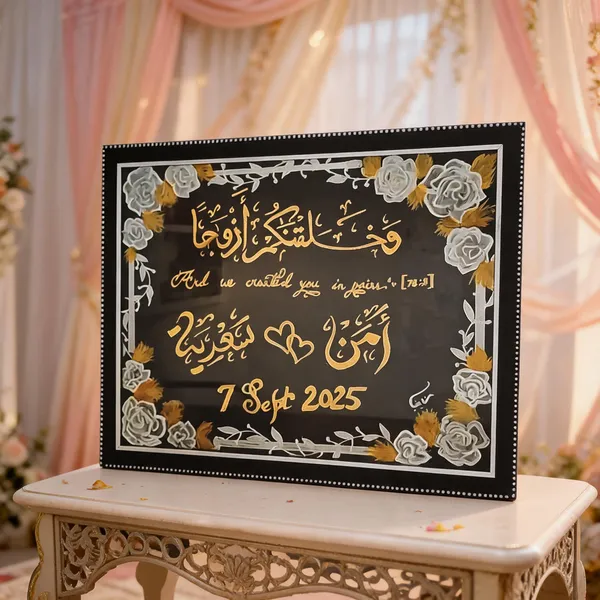 وَخَلَقْنَكُمْ أَزْوَجًا
And we created you in pairs." [78:8]
أَمَن سَعْدِيَة
7 Sept 2025